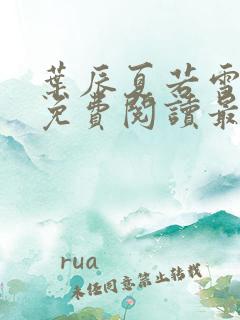 葉辰夏若雪
免費閱讀最
rua
未經同意禁止轉載